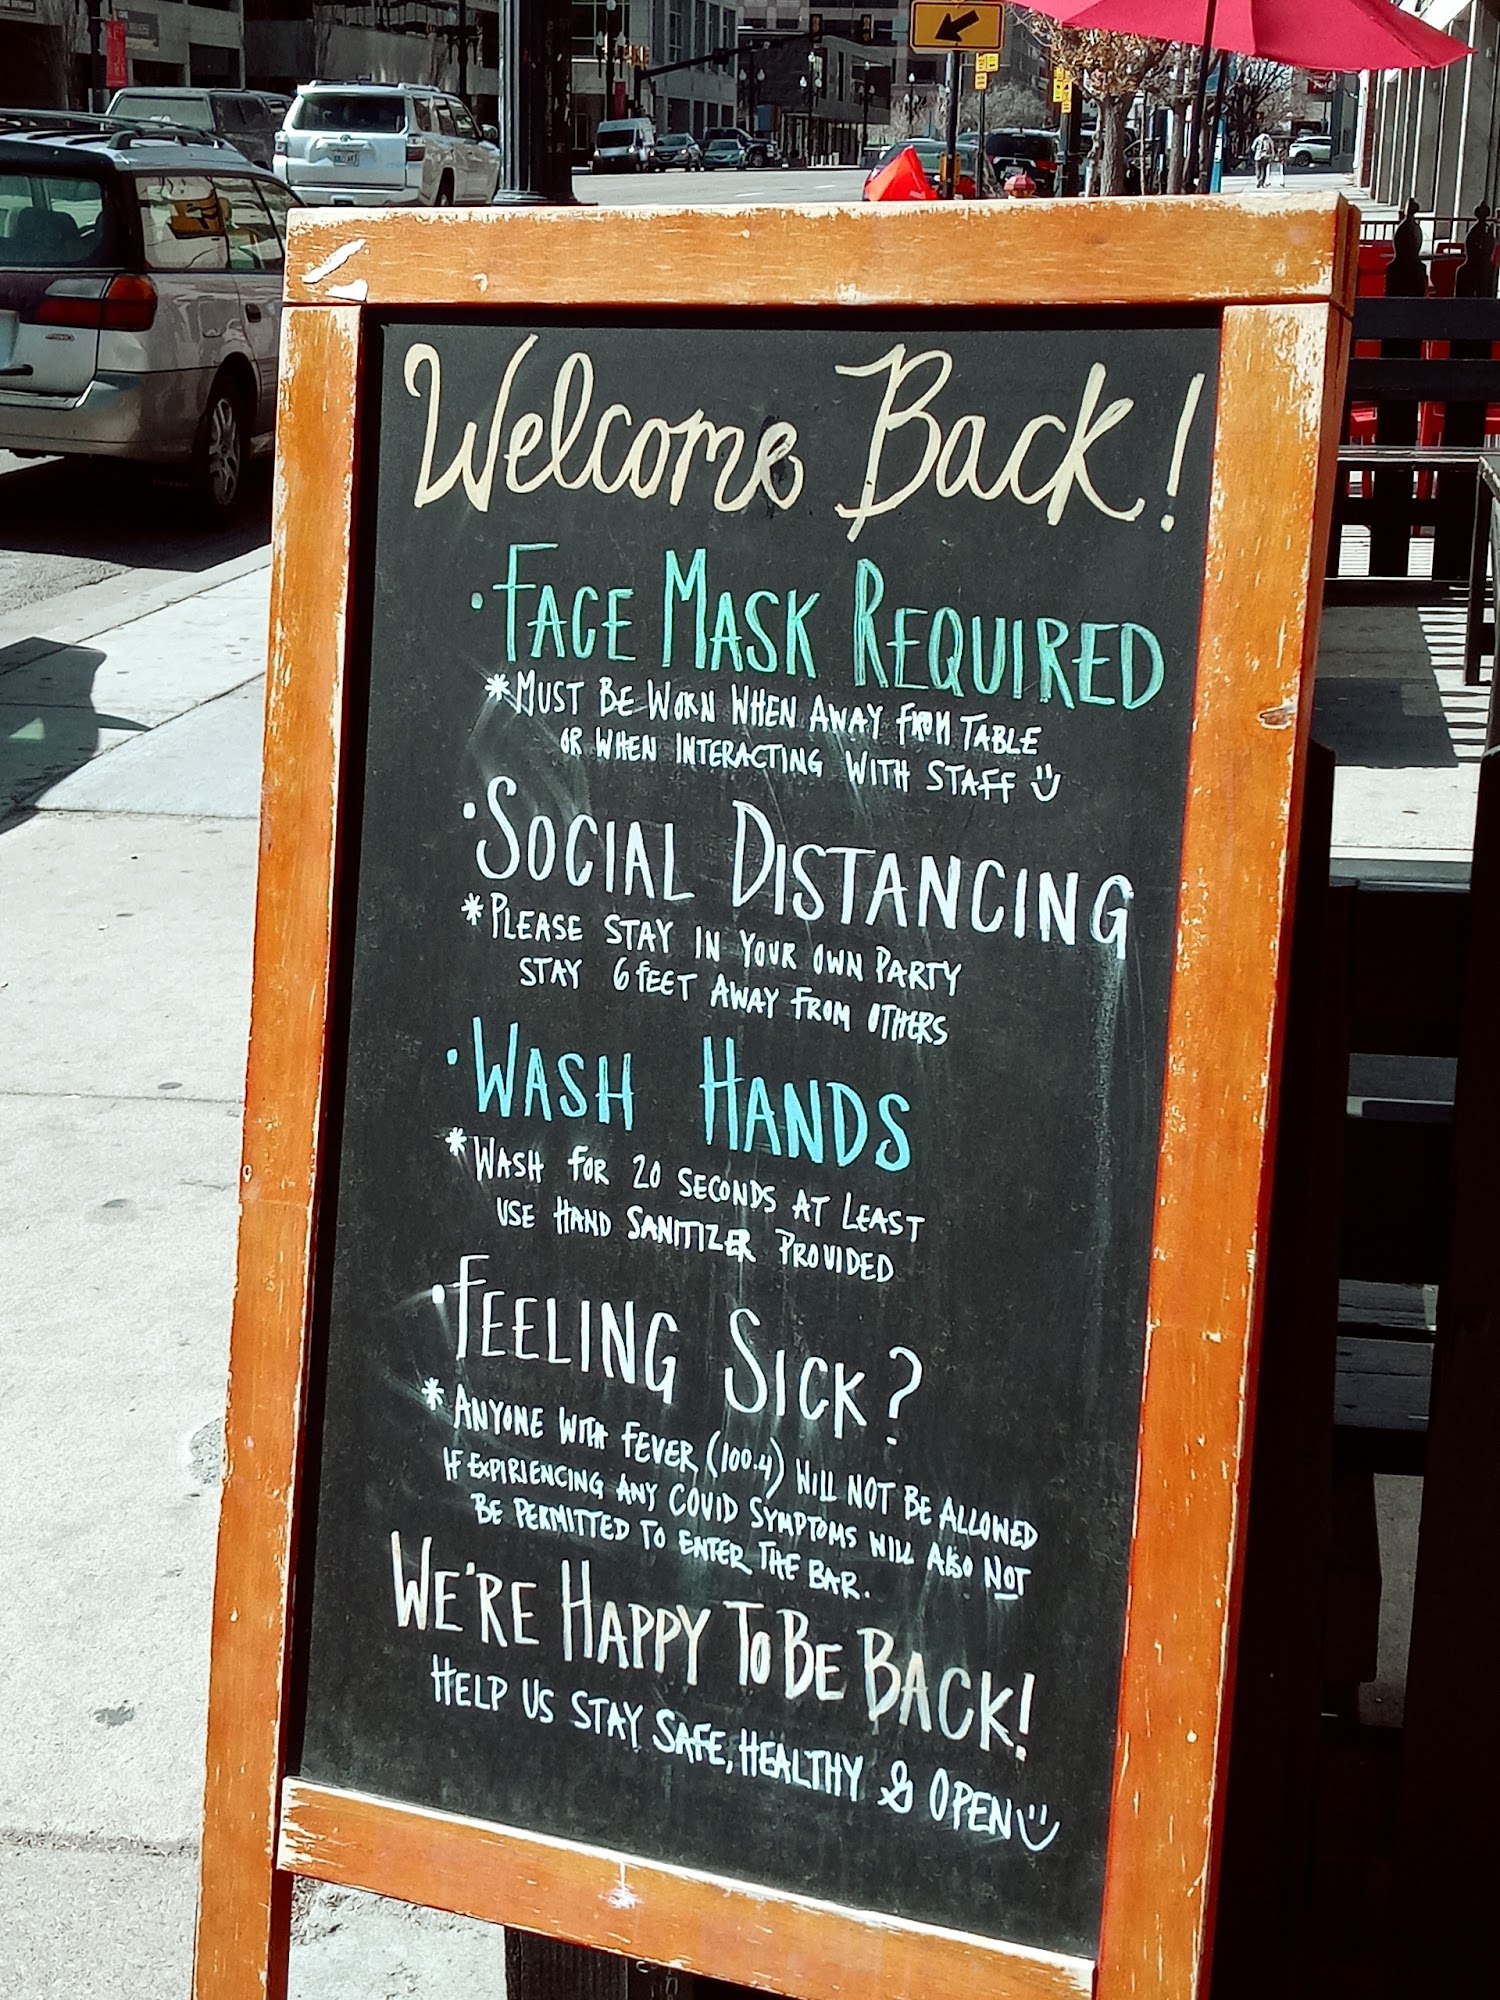 Welcome Back!
· FACE MASK REQUIRED
* MUST BE WORN WHEN AWAY FROM TABLE
OR WHEN INTERACTING WITH STAFF
· SOCIAL DISTANCING
* PLEASE STAY IN YOUR OWN PARTY
STAY 6 FEET AWAY FROM OTHERS
· WASH HANDS
* WASH FOR 20 SECONDS AT LEAST
USE HAND SANITIZER PROVIDED
· FEELING SICK?
* ANYONE WITH FEVER (100.4) WILL NOT BE ALLOWED
IF EXPIRIENCING ANY COVID SYMPTOMS WILL ALSO NOT
BE PERMITTED TO ENTER THE BAR.
WE'RE HAPPY TO BE BACK!
HELP US STAY SAFE, HEALTHY & OPEN